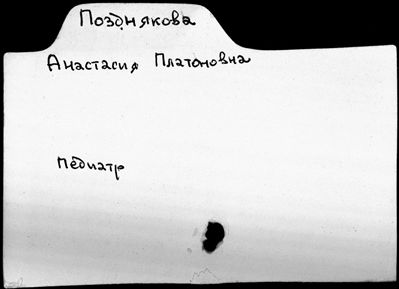 Позднякова
Анастасия Платоновна
педиатр